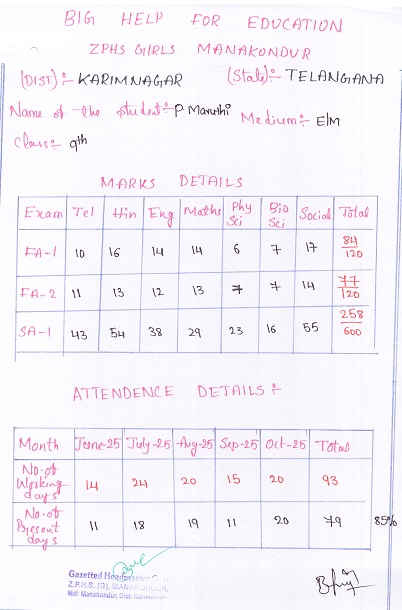 BIG HELP FOR EDUCATION
ZPHS GIRLS MANAKONDUR
(DIST):- KARIMNAGAR (State):- TELANGANA
Name of the student:- P Maruthi Medium:- E/M
Class:- 9th
MARKS DETAILS
Exam Tel Hin Eng Maths Phy Sci Bio Sci Social Total
FA-1 10 16 14 14 6 7 17 84/120
FA-2 11 13 12 13 7 7 14 77/120
SA-1 43 54 38 29 23 16 55 258/600
ATTENDENCE DETAILS:-
Month June-25 July-25 Aug-25 Sep-25 Oct-25 Total
No.of Working days 14 24 20 15 20 93
No.of Present days 11 18 19 11 20 79 85%
Gazetted Headmaster
Z.P.H.S. (G), MANAKONDUR,
Mdl: Manakondur, Dist: Karimnagar